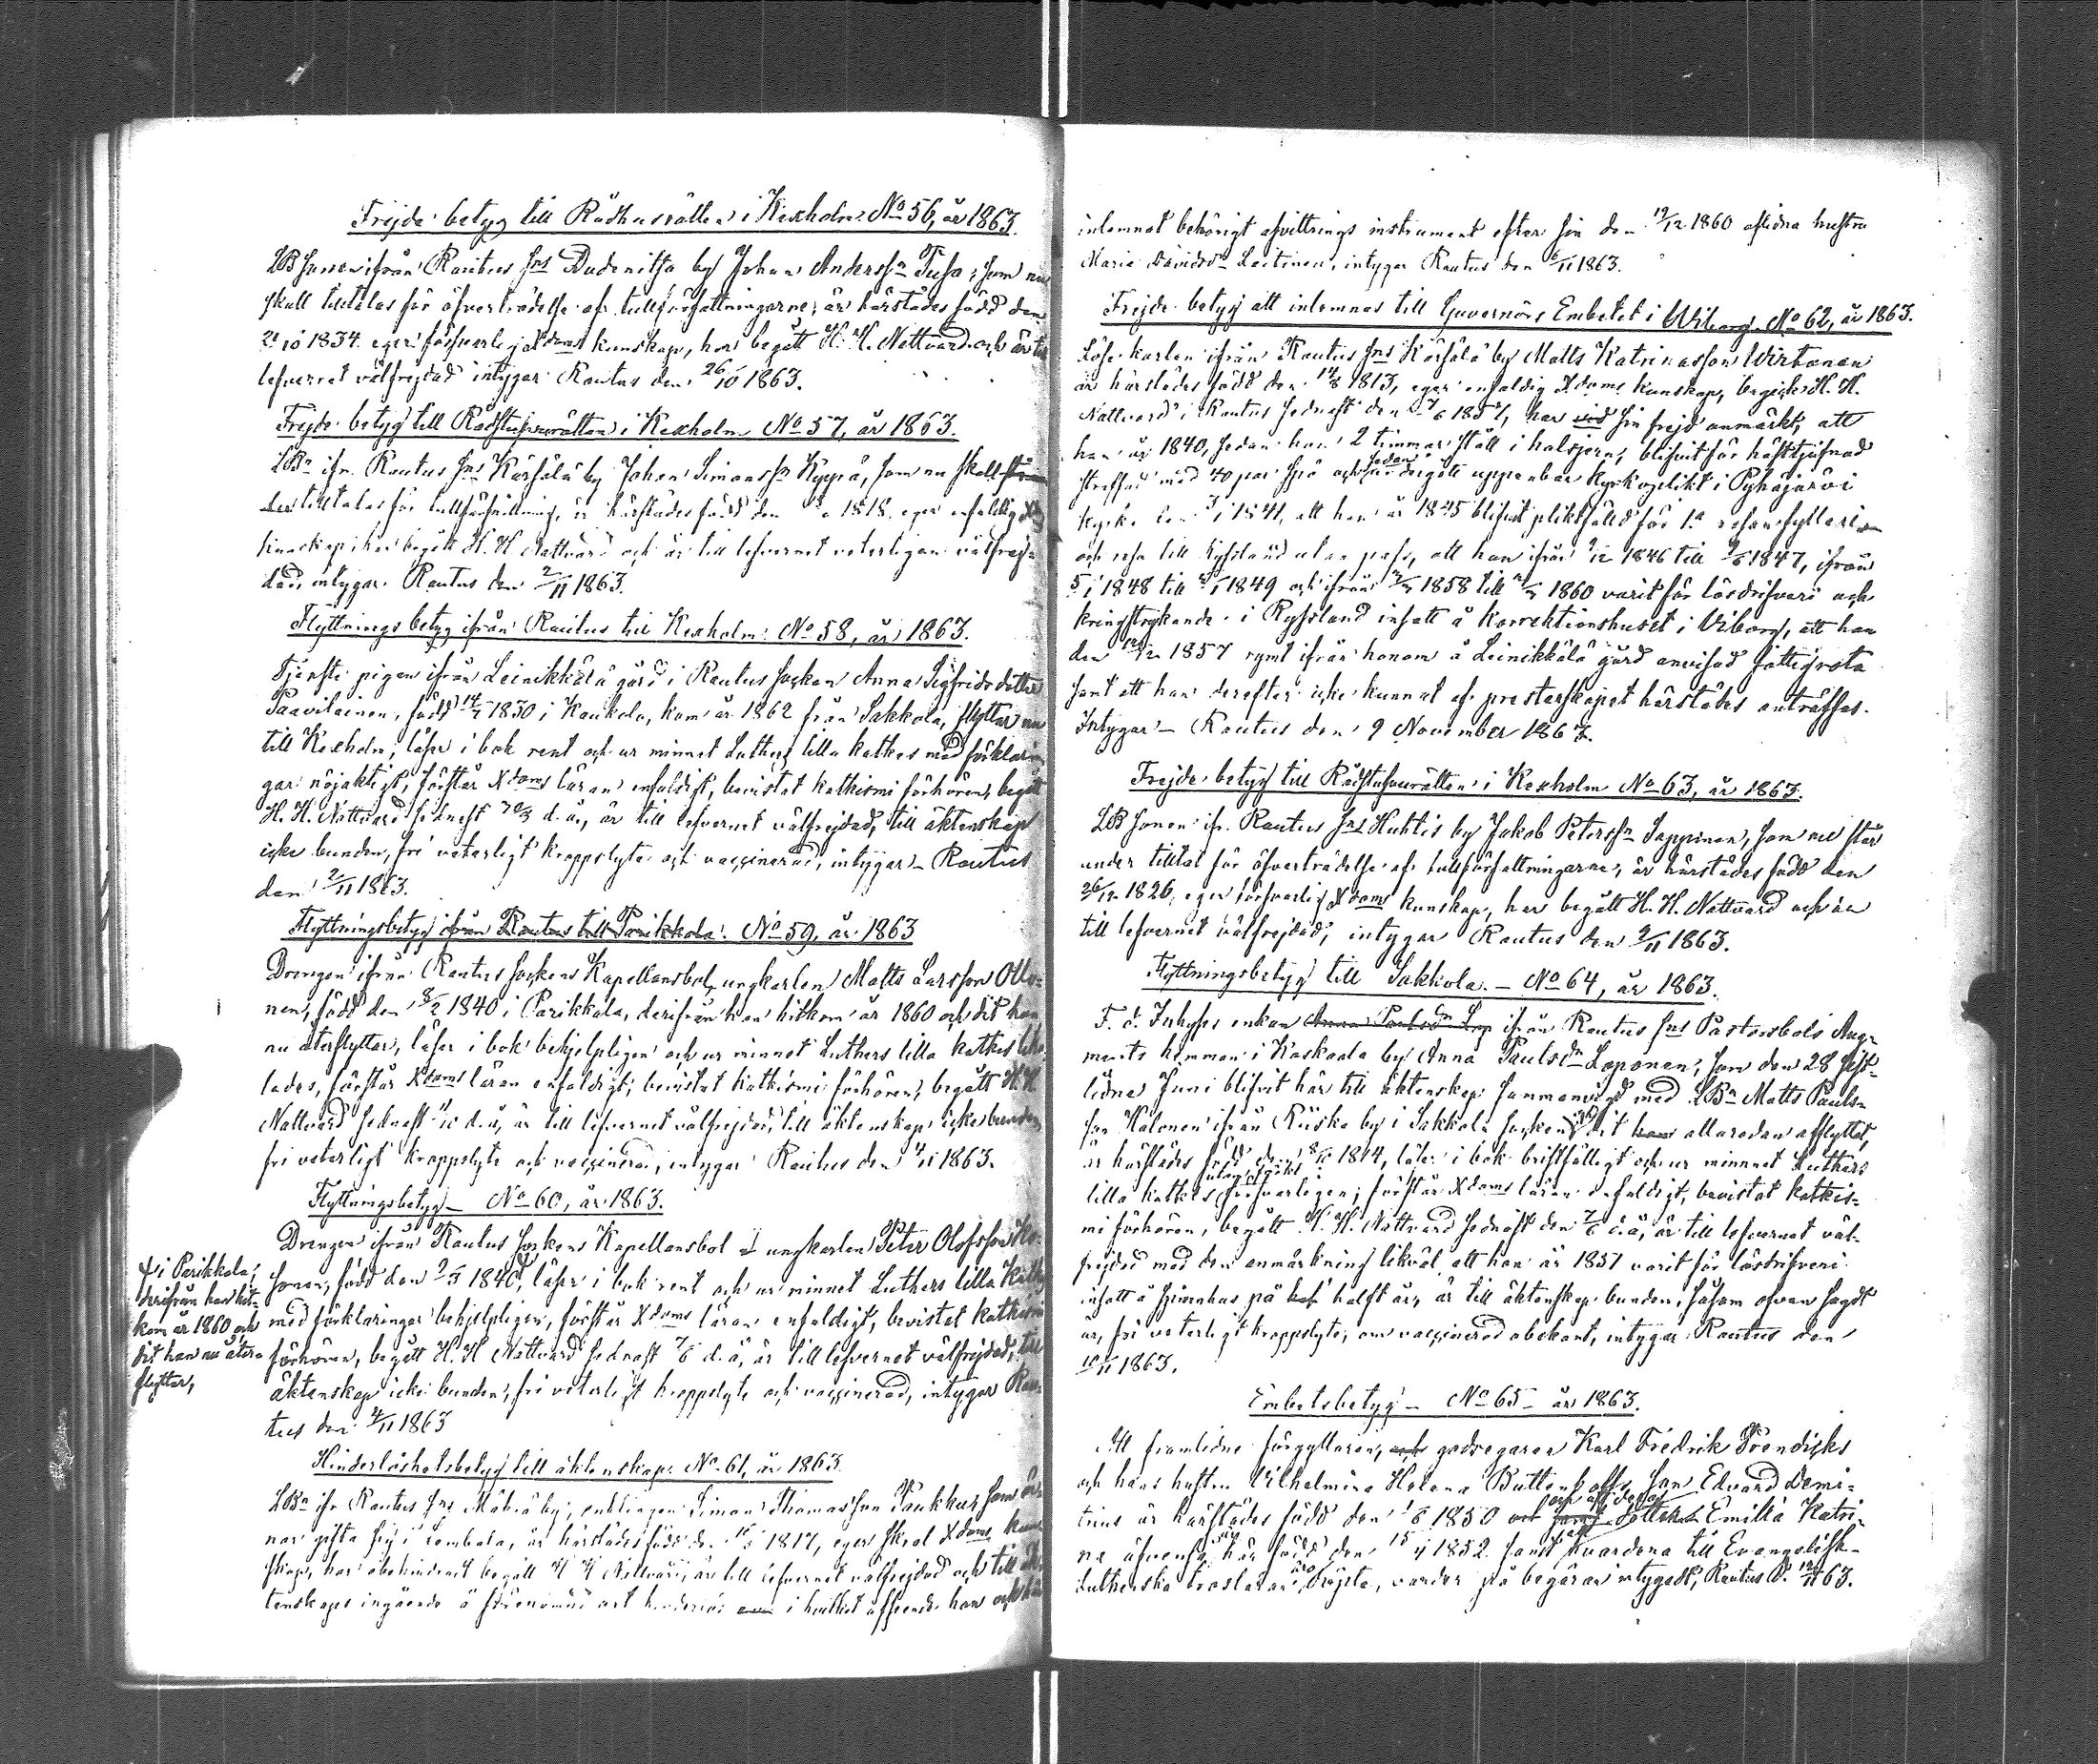 Frejde betyg till Rådhusrätten i Kexholm No 56, år 1863.
LBsonen ifrån Rautus sns Dudenitsa by Johan Anderssn Tusa, som nu
skall tilltalas för öfverträdelse af tullförfattningarne, är härstädes född den
1834. eger försvarlig Xdoms kunskap, har begått H. H. Nattvard och är till
lefvernet välfrejdad intygar Rautus den 26/10 1863.
Frejde betyg till Rådstufvurätten i Kexholm No 57, år 1863.
LBn ifr. Rautus sns Kärsälä by Johan Simonssn Kyyrä, som nu skall
tilltalas för tullförsnillning, är härstädes född den 1818. eger enfaldig
kunskap, har begått H. H. Nattvard och är till lefvernet veterligen välfrej-
dad, intygar Rautus den 2/11 1863.
Flyttnings betyg ifrån Rautus till Kexholm No 58, år 1863.
Tjenste pigan ifrån Leinikkälä gård i Rautus socken Anna Sigfrids dotter
Paavilainen, född 1830 i Kaukola, kom år 1862 från Sakkola, flyttar nu
till Kexholm, läser i bok rent och ur minnet Luthers lilla kathes med förklarin-
gar nöjaktigt, förstår Xdoms läran enfaldigt, bevistat kathismi förhören, begått
H. H. Nattvard sednast d. å., är till lefvernet välfrejdad, till äktenskap
icke bunden, fri veterligt kroppslyte och vaccinerad, intygar Rautus
den 2/11 1863.
Flyttningsbetyg ifrån Rautus till Parikkala. No 59, år 1863
Drengen ifrån Rautus sockens Kapellansbol ungkarlen Matts Larsson Otto-
nen, född den 8/2 1840 i Parikkala, derifrån han hitkom år 1860 och dit han
nu återflyttar, läser i bok behjelpligen och ur minnet Luthers lilla kathes like-
ledes, förstår Xdoms läran enfaldigt, bevistat kathismi förhören, begått H. H.
Nattvard sednast d. å, är till lefvernet välfrejdad, till äktenskap icke bunden,
fri veterligt kroppslyte och vaccinerad, intygar Rautus den 4/11 1863.
Flyttningsbetyg No 60, år 1863.
Drengen ifrån Rautus sockens Kapellansbol ungkarlen Peter Olofsson
sonen, född den 1840, läser i bok rent och ur minnet Luthers lilla Kathes
med förklaringar behjelpligen, förstår Xdoms läran enfaldigt, bevistat kathismi
förhören, begått H. H. Nattvard sednast 7/6 d. å, är till lefvernet välfrejdad, till
äktenskap icke bunden, fri veterligt kroppslyte och vaccinerad, intygar Rau-
tus den 4/11 1863
i Parikkala,
derifrån han hit-
kom år 1860 och
dit han nu åter-
flyttar,
Hinderlöshetsbetyg till äktenskap No 61, år 1863.
LBn ifr Rautus sns Mäkrä by, enklingen Simon Thomasson Paukku, som är-
nar gifta sig i Lembala, är härstädes född d. 1817, eger skral Xdoms kun-
skap, har obehindradt begått H H Nattvard, är till lefvernet välfrejdad och till äk-
tenskaps ingående å i hvilket afseende han
inlemnat behörigt afvittrings instrument efter sin den 17/12 1860 aflidna hustru
Maria Davidsdr Leitinen, intygar Rautus den 6/11 1863.
Frejde betyg att inlemnas till Guvernörs Embetet i Wiborg. No 62, år 1863.
Löse karlen ifrån Rautus sns Kärsälä by Matts Katrinasson Wirtanen
är härstädes född den 14/8 1813, eger enfaldig Xdoms kunskap, begick H. H.
Nattvard i Rautus sednast den 1857, har vid sin frejd anmärkt, att
han år 1840, sedan han 2 timmar stått i halsjern, blifvit för häststjufnad
straffad med 40 par spö och sedan undergått uppenbar kyrkoplikt i Pyhäjärvi
kyrka den 1841, att han år 1845 blifvit pliktfälld för 1a resan fylleri
och resa till Ryssland utan pass, att han ifrån 1846 till 1847, ifrån
1848 till 1849 och ifrån 1858 till 1860 varit för lösdrifveri och
kringstrykande i Ryssland insatt å korrektionshuset i Viborg, att han
den 1857 rymt ifrån honom å Leinikkälä gård anvisad fattigrota
samt att han derefter icke kunnat af presterskapet härstädes anträffas.
Intygar Rautus den 9 November 1863.
Frejde betyg till Rådstufvurätten i Kexholm No 63, år 1863.
LBsonen ifr. Rautus sns Huhtis by Jakob Peterssn Sappinen, som nu står
under tilltal för öfverträdelse af tullförfattningarne, är härstädes född den
26/12 1826, eger försvarlig Xdoms kunskap, har begått H. H. Nattvard och är
till lefvernet välfrejdad, intygar Rautus den 9/11 1863.
Flyttningsbetyg till Sakkola. No 64, år 1863.
F. d. Inhyses enkan ifrån Rautus sns Pastorsbols Aug-
ments hemman i Kaskaala by Anna Paulsdr Loponen, som den 28 sist-
lidne Juni blifvit här till äktenskap sammanvigd med LBn Matts Pauls-
son Kalonen ifrån Riiska by i Sakkola socken och dit allaredan afflyttat,
är härstädes född den 1814, läser i bok bristfälligt och ur minnet Luthers
lilla kathes utanläxt försvarligen, förstår Xdoms läran enfaldigt, bevistat kathis-
mi förhören, begått H. H. Nattvard sednast den 7/6 d. å, är till lefvernet väl-
frejdad med den anmärkning likväl att hon år 1851 varit för lösdrifveri
insatt å spinnhus på halft år, är till äktenskap bunden, såsom ofvan sagdt
är, fri veterligt kroppslyte, om vaccinerad obekant, intygar Rautus den
10/11 1863.
Embetsbetyg No 65 år 1863.
Att framlidne förgyllaren, godsegaren Karl Fredrik Frendicks
och hans hustru Vilhelmina Helena Buttenhoffs son Edvard Demi-
trius är härstädes född den 1850 och att deras dotter Emilia Katri-
na äfvenså är här född den 1852 samt att hvardera till Evangelisk-
Lutherska trosläran äro döpta, varder på begäran intygadt, Rautus d. 12/11 63.